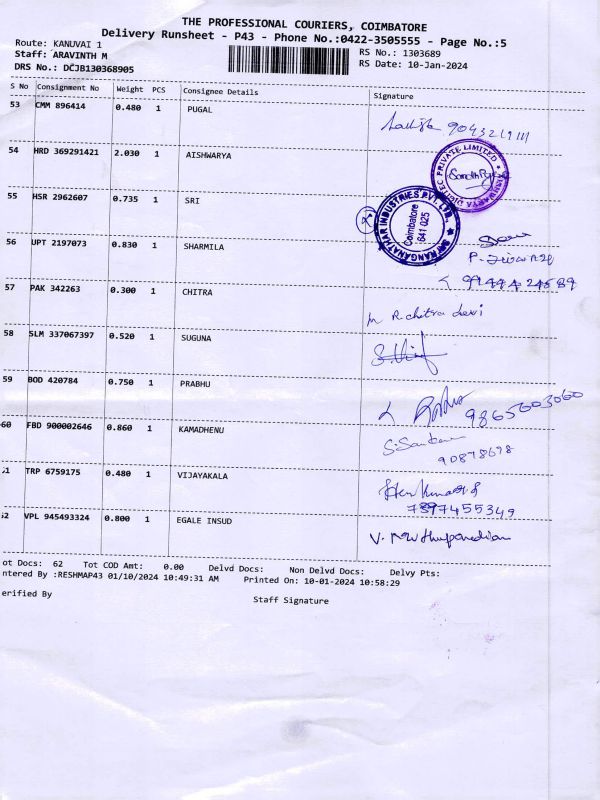 THE PROFESSIONAL COURIERS, COIMBATORE
Delivery Runsheet - P43 - Phone No.:0422-3505555 - Page No.:5
Route: KANUVAI 1
Staff: ARAVINTH M
DRS No.: DCJB130368905
RS No.: 1303689
RS Date: 10-Jan-2024
S No Consignment No Weight PCS Consignee Details Signature
53 CMM 896414 0.480 1 PUGAL
9043219111
54 HRD 369291421 2.030 1 AISHWARYA
AISHWARYA DIGITEC PRIVATE LIMITED
55 HSR 2962607 0.735 1 SRI
SRI RANGANATHAR INDUSTRIES PVT. LTD.
Coimbatore
641 025
56 UPT 2197073 0.830 1 SHARMILA
99444 24589
57 PAK 342263 0.300 1 CHITRA
R. chitra devi
58 SLM 337067397 0.520 1 SUGUNA
59 BOD 420784 0.750 1 PRABHU
9865003060
60 FBD 900002646 0.860 1 KAMADHENU
90878678
61 TRP 6759175 0.480 1 VIJAYAKALA
7397455349
62 VPL 945493324 0.800 1 EGALE INSUD
V. Muthupandian
ot Docs: 62 Tot COD Amt: 0.00 Delvd Docs: Non Delvd Docs: Delvy Pts:
ntered By :RESHMAP43 01/10/2024 10:49:31 AM Printed On: 10-01-2024 10:58:29
erified By
Staff Signature